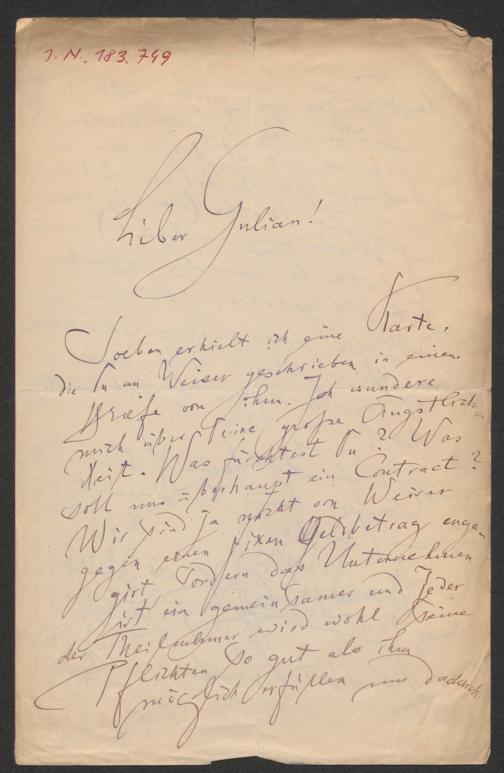 I. N. 183.749
Lieber Julian!
Soeben erhielt ich eine Karte,
die Du an Weiser geschrieben in einem
Briefe von ihm. Ich wundere
mich über Deine große Ängstlich-
keit. Was fürchtest Du? Was
soll uns überhaupt ein Contract?
Wir sind ja nicht von Weiser
gegen einen fixen Geldbetrag enga-
girt sondern das Unternehmen
ist ein gemeinsamer und jeder
der Theilnehmer wird wohl seine
Pflichten so gut als ihm
möglich erfüllen um dadurch